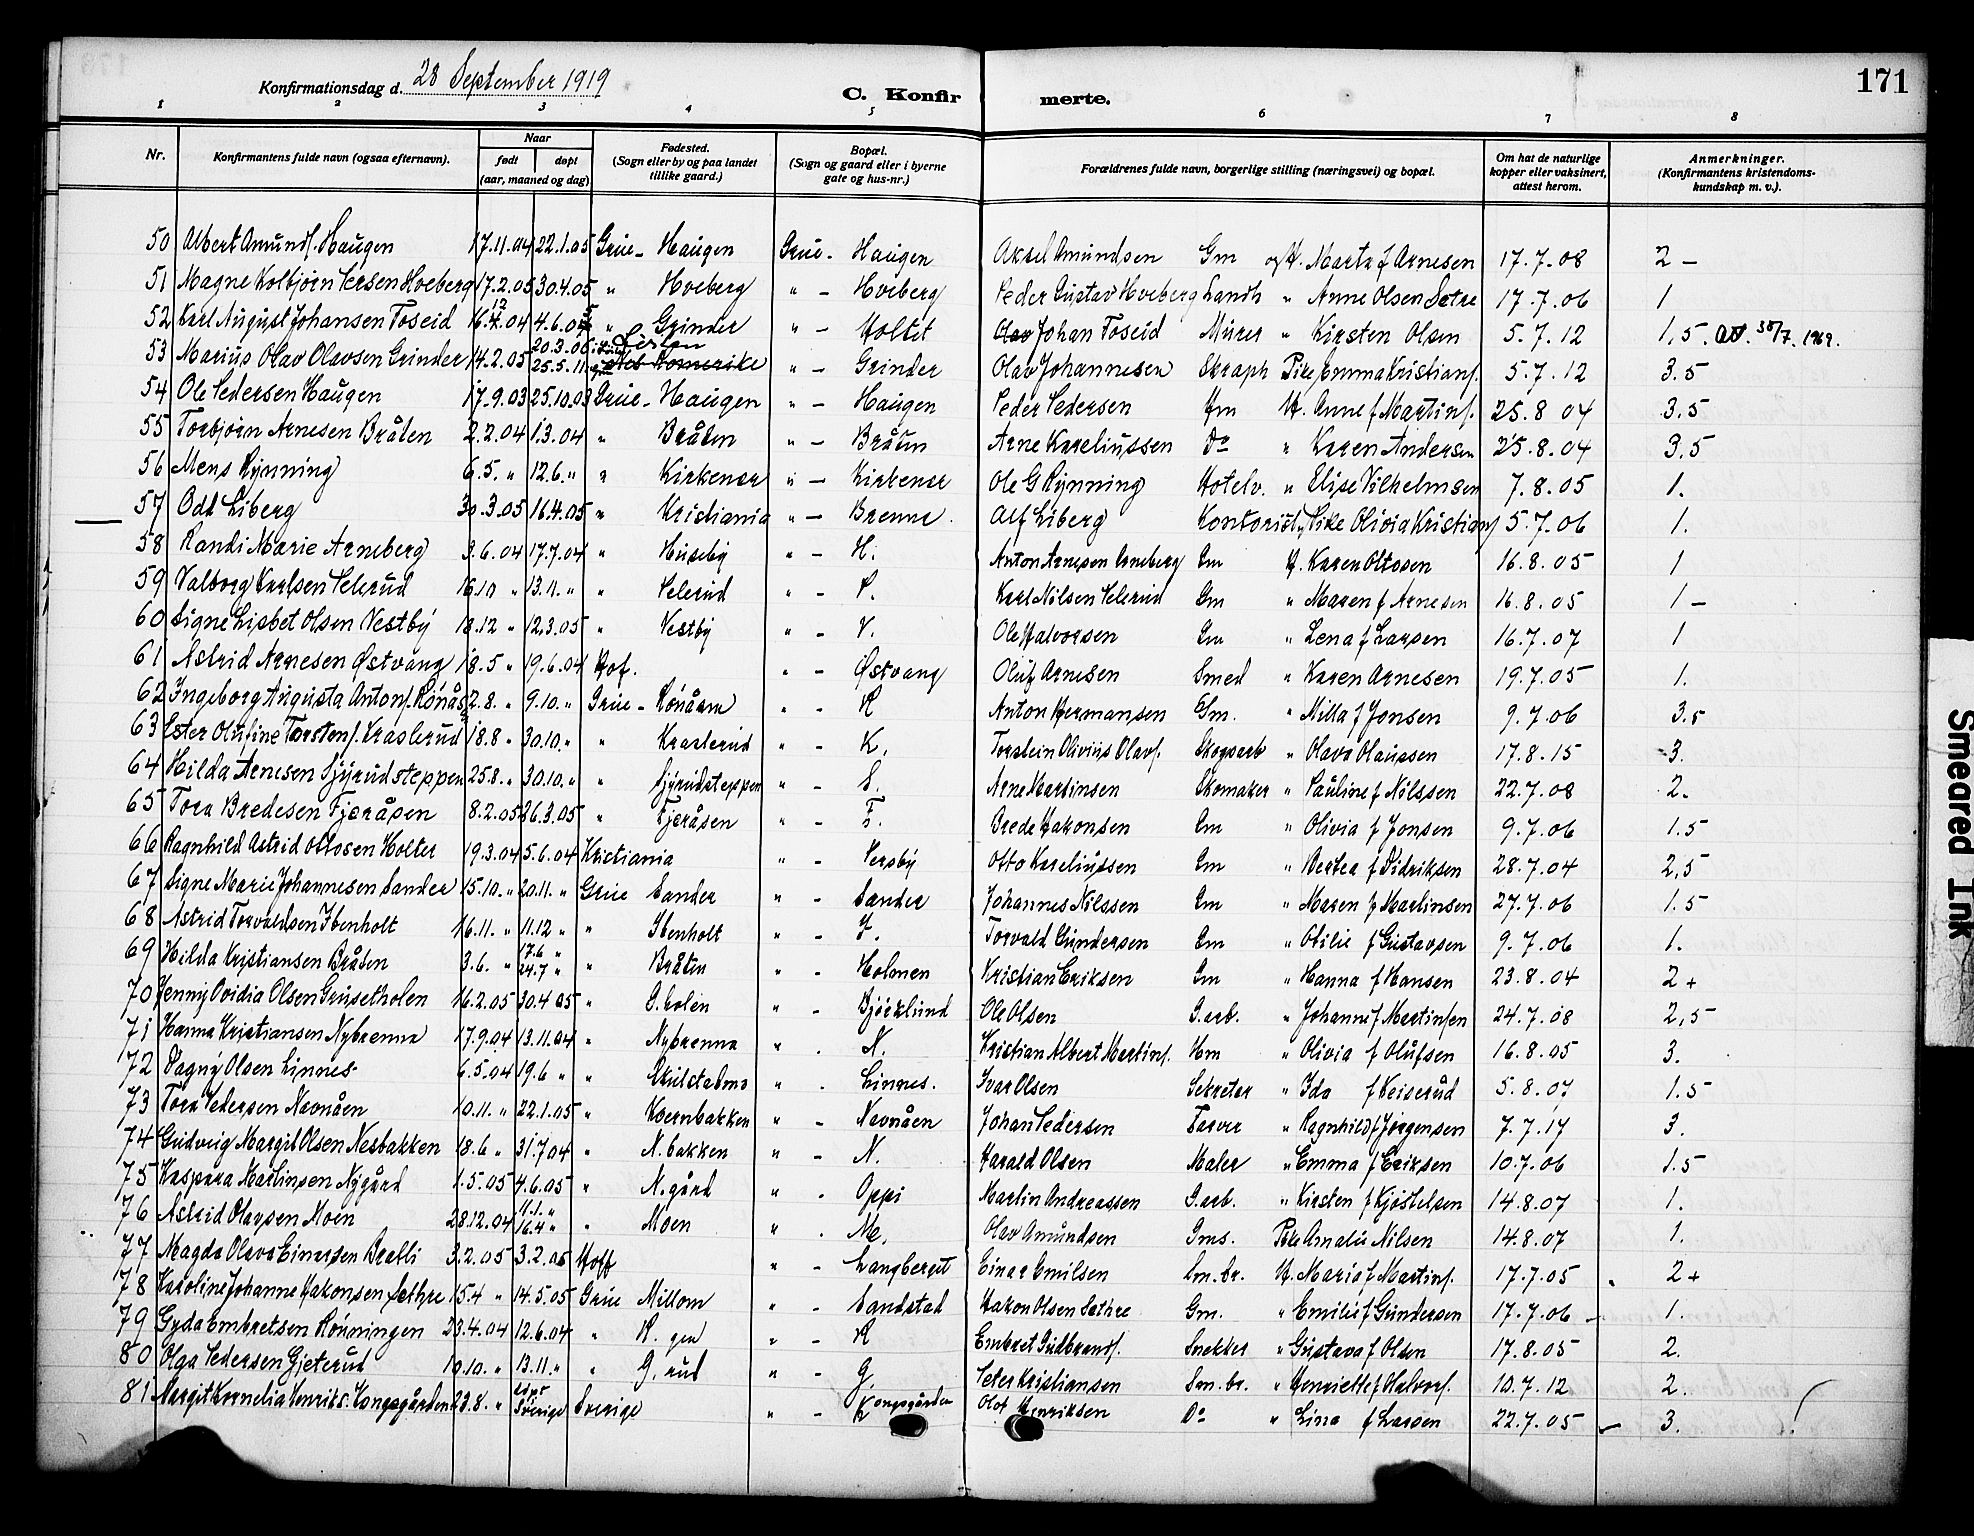 171
Konfirmationsdag d. 28 September 1919
C. Konfirmerte.
1 2 3 4 5 6 7 8
Nr. Konfirmantens fulde navn (ogsaa efternavn). Naar født døpt (aar, maaned og dag) Fødested. (Sogn eller by og paa landet tillike gaard.) Bopæl. (Sogn og gaard eller i byerne gate og hus-nr.) Forældrenes fulde navn, borgerlige stilling (næringsvei) og bopæl. Om hat de naturlige kopper eller vaksinert, attest herom. Anmerkninger. (Konfirmantens kristendomskundskap m. v.).
50 Albert Amunds. Haugen 17.11.04 22.1.05 Grue - Haugen Grue - Haugen Aksel Amundsen Gm og H. Marta f Arnesen 17.7.08 2 -
51 Magne Kolbjørn Persen Hveberg 17.2.05 30.4.05 " Hveberg " - Hveberg Peder Gustav Hveberg Landh " Anne Olsen Sætre 17.7.06 1
52 Karl August Johansen Toseid 16.12.04 4.6.05 " Grinder " - Holtet Johan Toseid Murer " Kirsten Olsen 5.7.12 1,5. 30/7. 1969.
53 Marius Olav Olavsen Grinder 14.2.05 20.3.06 25.5.11 Nes Romerike " - Grinder Olav Johannesen Pike Emma Kristians. 5.7.12 3.5
54 Ole Pedersen Haugen 17.9.03 25.10.03 Grue - Haugen " - Haugen Peder Pedersen Hm H. Anne f Martins. 25.8 04 3.5
55 Torbjørn Arnesen Bråten 2.2.04 13.04 " Bråten " - Bråten Arne Kareliussen Do " Karen Andersen 25.8.04 3.5
56 Mens Rynning 6.5. " 12.6. " " Kirkenær " - Kirkenær Ole G Rynning Hotelv. " Elise Vilhelmsen 7.8.05 1.
57 Odd Liberg 30.3.05 16.4.05 " Kristiania " - Brenna. Alf Liberg Kontorist Pike Olivia Kristians 5.7.06 1.
58 Randi Marie Arneberg 3.6.04 17.7.04 " Huseby " - H. Anton Arnesen Arneberg Gm H. Karen Ottosen 16.8.05 1
59 Valborg Karlsen Pelerud 16.10 " 13.11. " " Pelerud " - P. Karl Nilsen Pelerud Gm " Maren f Arnesen 16.8.05 1 -
60 Signe Lisbet Olsen Vestby 18.12 " 12.3.05 " Vestby " - V. Ole Halvorsen Gm " Lena f Larsen 16.7.07 1
61 Astrid Arnesen Østvang 18.5 " 19.6.04 Hof. " - Østvang Oluf Arnesen Smed " Karen Arnesen 19.7.05 1.
62 Ingeborg Augusta Antons. Rönåsen 2.8. " 9.10. " Grue - Rönåsen " - R Anton Hermansen Gm. " Milla f Jonsen 9.7.06 3.5
63 Ester Olufine Torstens. Kraslerud 18.8 " 30.10. " " Kraslerud " - K. Torstein Olivius Olavs. Skogsarb " Olava Olaussen 17.8.15 3.
64 Hilda Arnesen Sjyrudsteppen 25.8. " 30.10. " " Sjyrudsteppen " - S. Arne Martinsen Skomaker " Pauline f Nilssen 22.7.08 2.
65 Tora Bredesen Fjeråsen 8.2.05 26.3.05 " Fjeråsen " - F. Brede Hakonsen Gm " Olivia f Jonsen 9.7.06 1.5
66 Ragnhild Astrid Ottosen Holter 19.3.04 5.6.04 Kristiania " - Persby Otto Kareliussen Gm " Bertea f Didriksen 28.7.04 2,5
67 Signe Marie Johannesen Sander 15.10. " 20.11. " Grue Sander " - Sander Johannes Nilssen Gm " Maren f Martinsen 27.7.06 1.5
68 Astrid Torvaldsen Ibenholt 16.11. " 11.12 " " Ibenholt " - I. Torvald Gundersen Gm " Otilie f Gustavsen 9.7.06 1.
69 Hilda Kristiansen Bråten 3.6. " 17.6 " 24.7 " " Bråten " - Holmen Kristian Eriksen Gm " Hanna f Hansen 23.8.04 2 +
70 Jenny Ovidia Olsen Grusetholen 16.2.05 30.4 05 " G.holen " - Bjørklund Ole Olsen G.arb. " Johanne f Martinsen 24.7.08 2,5
71 Hanna Kristiansen Nybrenna 17.9.04 13.11.04 " Nybrenna " - N. Kristian Albert Martins. Hm " Olivia f Olufsen 16.8.05 3.
72 Dagny Olsen Linnes 6.5.04 19.6 " " Skulstadmo " - Linnes. Ivar Olsen Sekretær " Ida f Keiserud 5.8.07 1.5
73 Tora Pedersen Navnåen 10.11. " 22.1.05 " Kvernbakken " - Navnåen Johan Pedersen Farver " Ragnhild f Jørgensen 7.7.17 3.
74 Gudveig Margit Olsen Nesbakken 18.6 " 31.7.04 " N.bakken " - N. Harald Olsen Maler " Emma f Eriksen 10.7.06 1.5
75 Kaspara Martinsen Nygård 1.5.05 4.6.05 " N.gård " - Oppi Martin Andreassen G.arb. " Kirsten f Kjøstelsen 14.8.07 1.
76 Astrid Olavsen Moen 28.12.04 11.1. " 16.4 " " Moen " - M. Olav Amundsen Gms. Pike Amalie Nilsen 14.8.07 1.
77 Magda Olava Einarsen Bratli 3.2.05 3.2.06 Hoff " - Langberget Einar Emilsen Sm.br. H. Maria f Martins. 17.7.05 2 +
78 Karoline Johanne Hakonsen Sæthre 15.4 " 14.5.05 Grue Millom " - Sandstad Hakon Olsen Sæthre Gm. " Emilie f Gundersen 17.7.06 - 1.
79 Gyda Embretsen Rönningen 23.4.04 12.6.04 " R.gen " - R Embret Gudbrands. Snekker " Gustava f Olsen 17.8.05 2.
80 Olga Pedersen Gjeterud 10.10. " 13.11. " " G.rud " - G. Peter Kristiansen Sm.br. " Henriette f Halvors. 10.7.12 2.
81 Margit Kornelia Henriks. Kongsgården 23.8. " Sverige Sverige " - Kongsgården Olof Henriksen Do " Lina f Larsen 22.7.05 - 3.
Smeared Ink